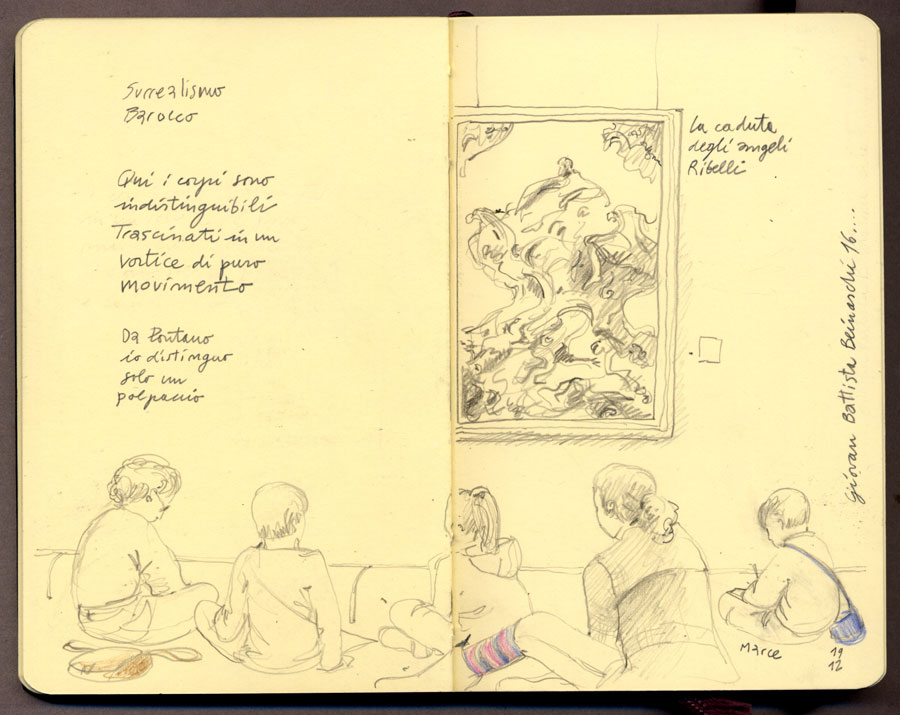 Surrealismo
Barocco
Qui i corpi sono
indistinguibili
Trascinati in un
vortice di puro
movimento
Da lontano
io distinguo
solo un
polpaccio
La caduta
degli angeli
Ribelli
Giovan Battista Beinaschi 16...
Marce
19
12